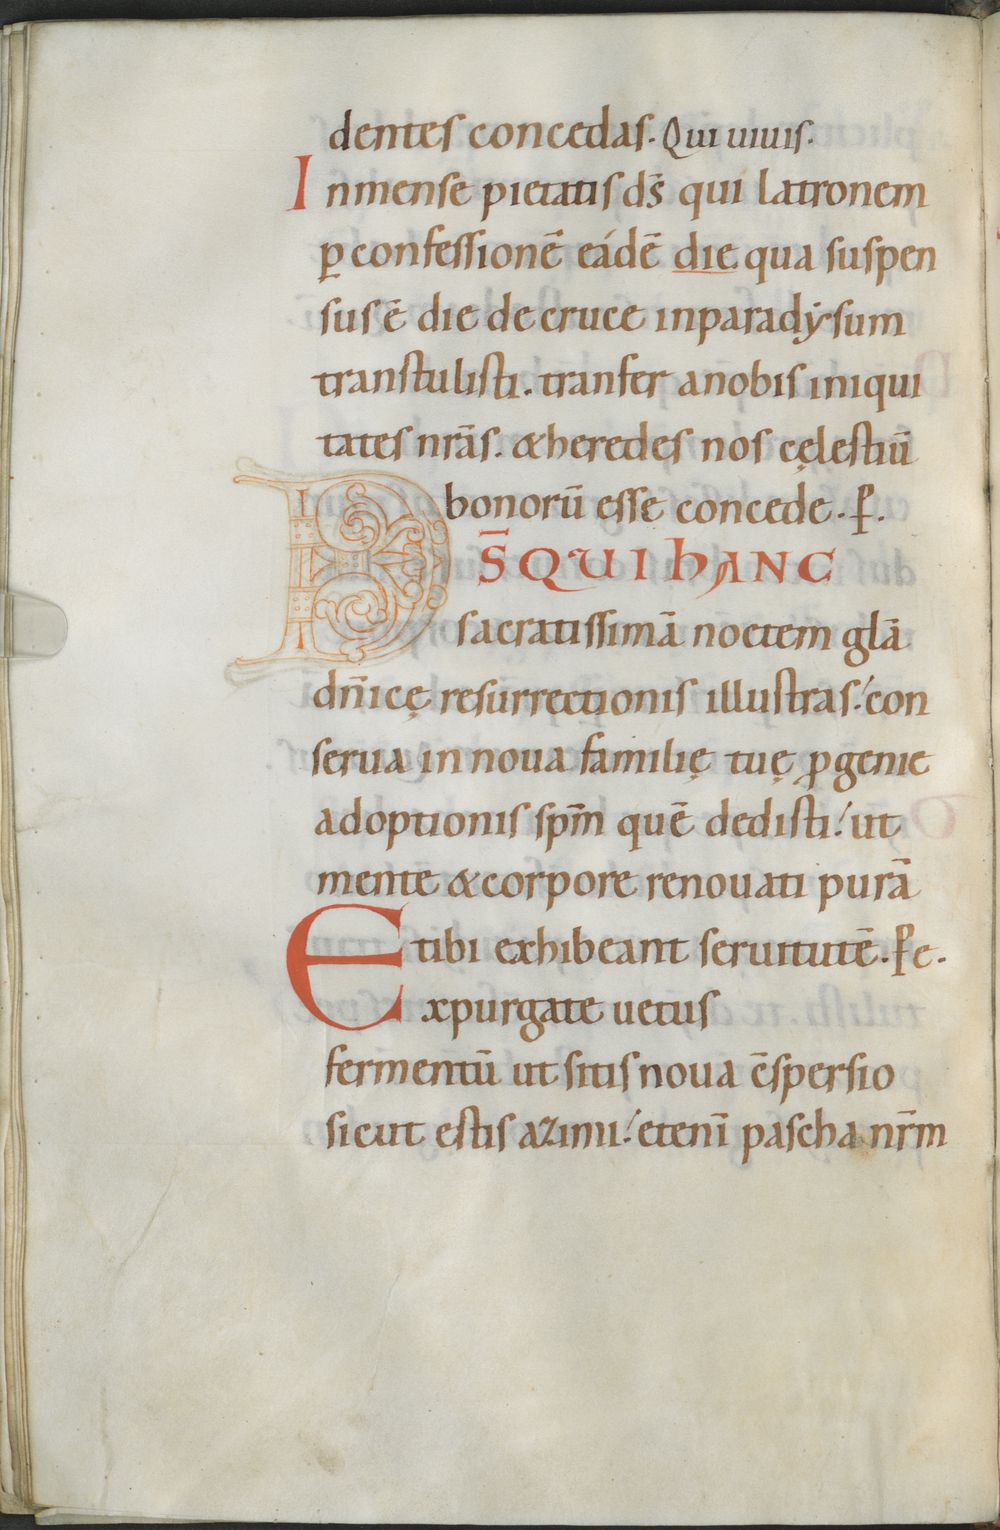 dentes concedas. Qui uiuis.
Inmense pietatis ds̄ qui latronem
ꝑ confessionē eádē die qua suspen
sus ē die de cruce inparadysum
transtulisti. tranfer anobis iniqui
tates nrās. & heredes nos cęlestiū
bonorū esse concede. ꝑ.
DS̄ QUI HANC
sacratissimā noctem glā
dn̄icę resurrectionis illustras. con
serua in noua familię tuę ꝓgenie
adoptionis spm̄ quē dedisti. ut
mente & corpore renouati purā
tibi exhibeant seruitutē. ꝑ e.
Expurgate uetus
fermentū ut sitis noua c̄spersio
sicut estis azimi. etenī pascha nr̄m